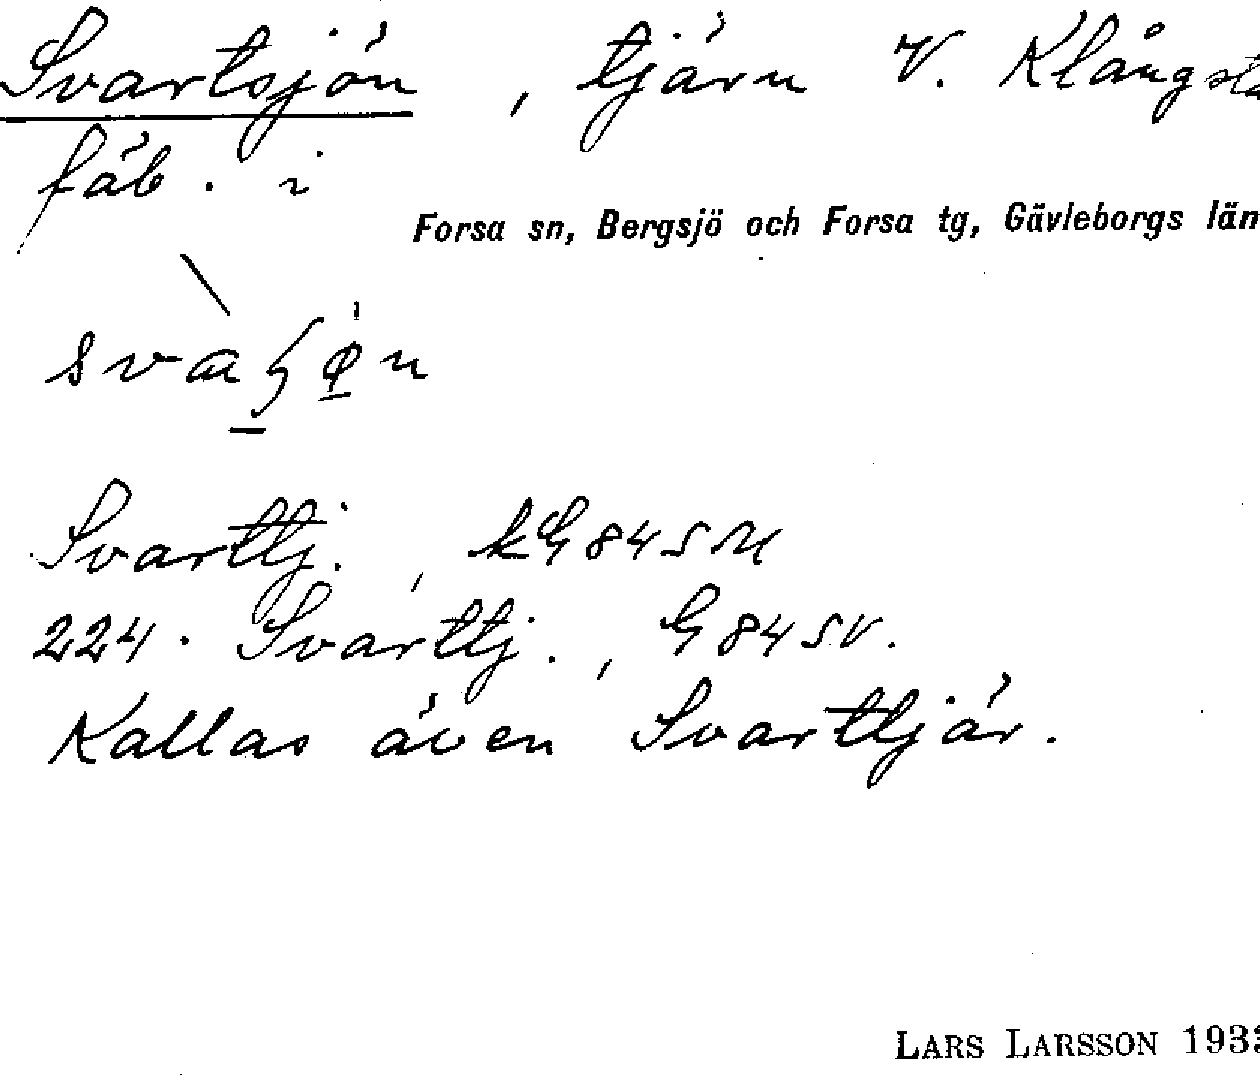 Svartsjön, tjärn V. Klångsta
fäb. i
Forsa sn, Bergsjö och Forsa tg, Gävleborgs län
Svarttj., kG84SM
224. Svarttj., G84SV.
Kallas även Svarttjär.
LARS LARSSON 193